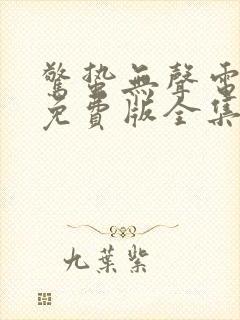 驚蟄無聲電
免費版全集
九葉紫